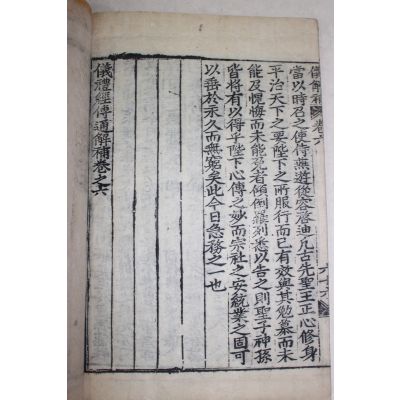 儀解補 卷六 六十六
當以時召之使侍燕遊從容啓迪凡古先聖王正心修身
平治天下之要陛下之所服行而已有效與其勉慕而未
能及愧悔而未能免者傾倒羅列悉以告之則聖子神孫
皆將有以得乎陛下心傳之妙而宗社之安統業之固可
以垂於永久而無窮矣此今日急務之一也
儀禮經傳通解補卷之六